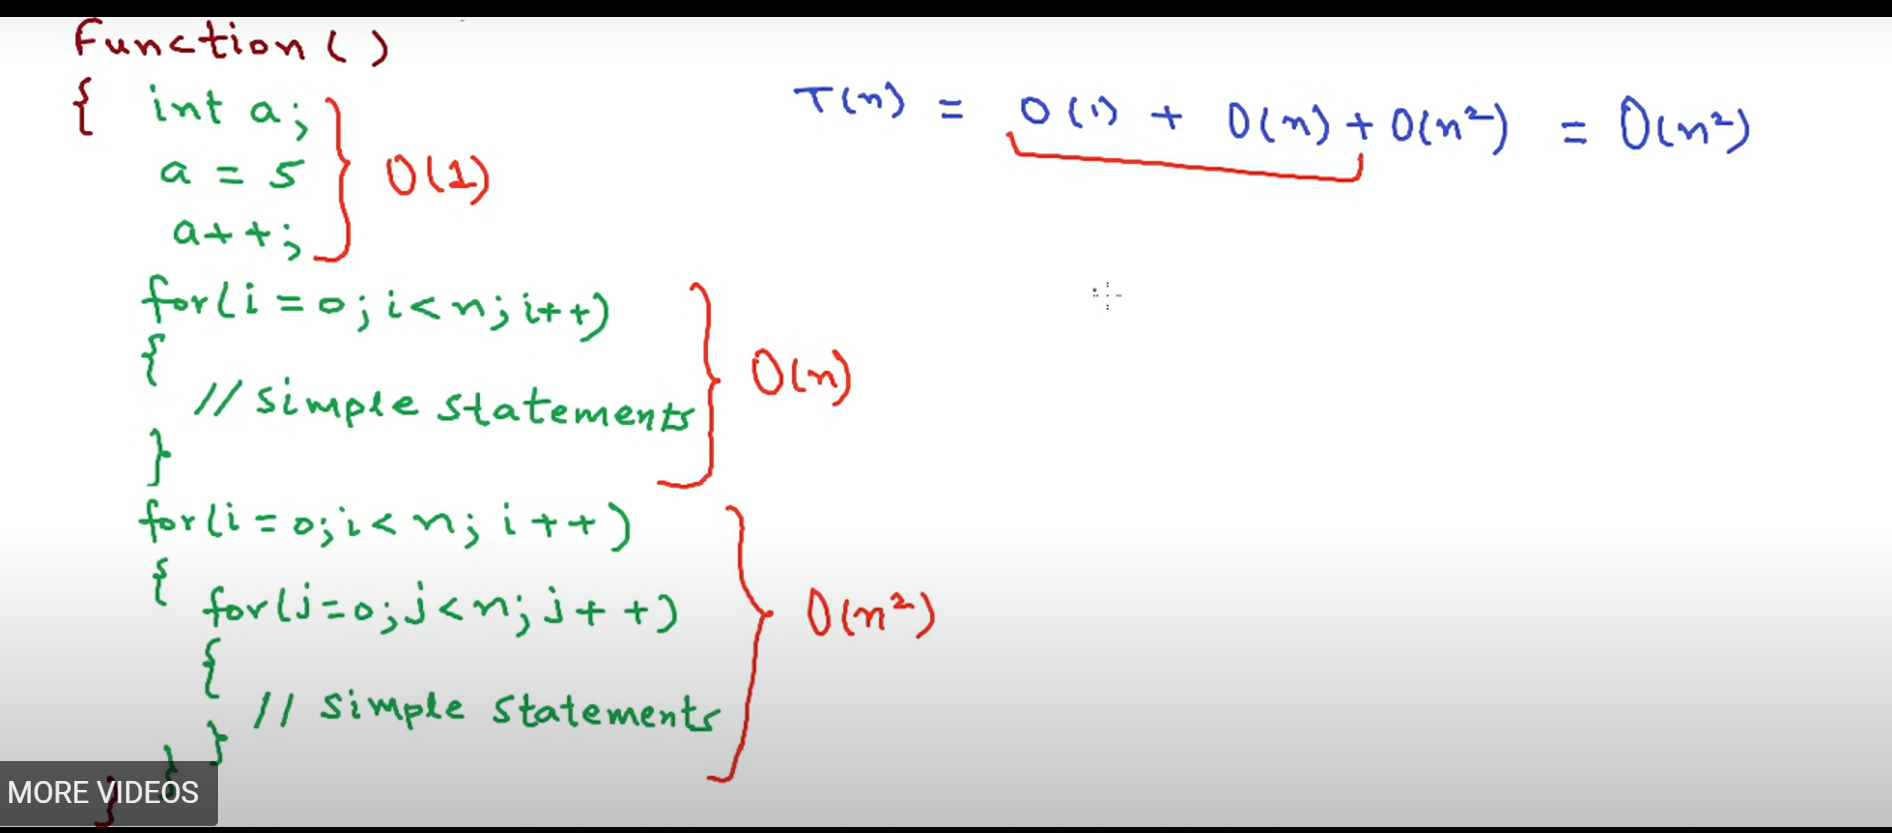 Function()
{ int a;
a = 5
a++;
O(1)
for(i = 0; i < n; i++)
{
// simple statements
}
O(n)
for(i = 0; i < n; i++)
{
for(j=0; j<n; j++)
{
// simple statements
}
}
}
O(n²)
T(n) = O(1) + O(n) + O(n²) = O(n²)
MORE VIDEOS